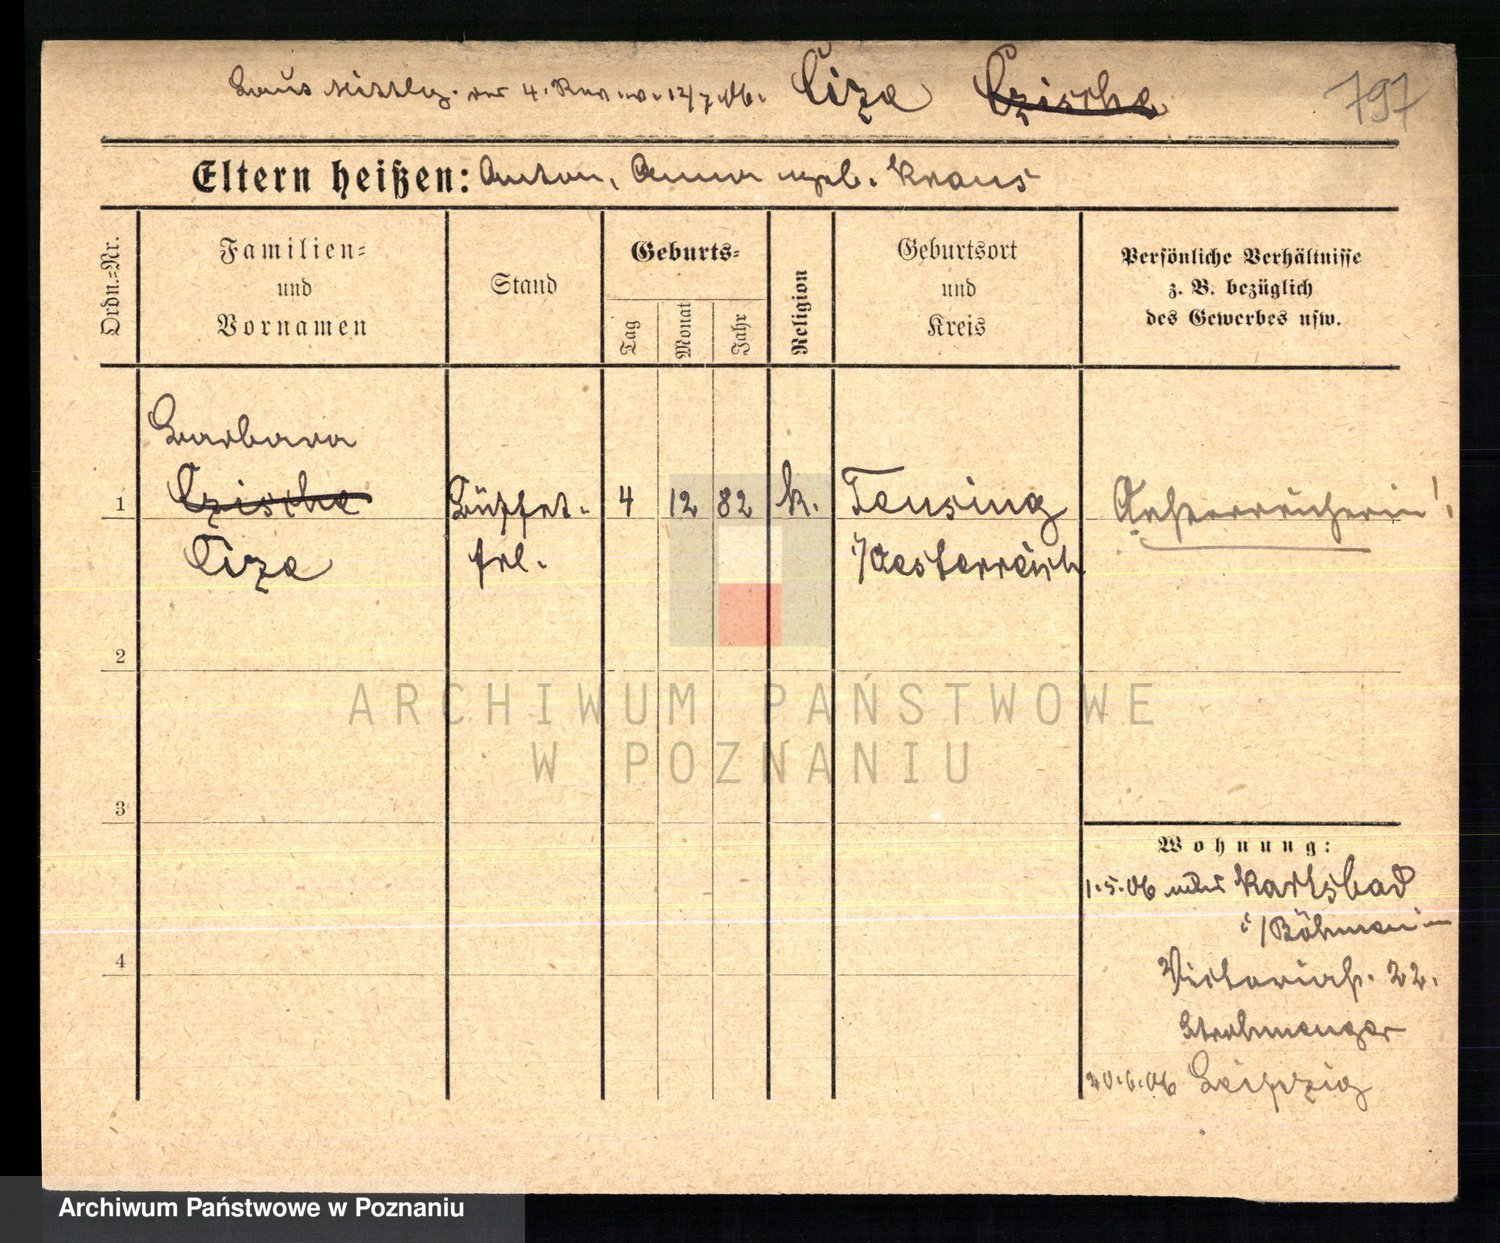 Laus Mittlg. des 4. Rev. v. 12/7.06. Ciza Czische 797
Eltern heißen: Anton, Anna geb. Kraus
Ordn.-Nr.
Familien- und Vornamen
Stand
Geburts-
Tag
Monat
Jahr
Religion
Geburtsort und Kreis
Persönliche Verhältnisse z. B. bezüglich des Gewerbes usw.
Barbara
1 Czische Büffet- 4 12 82 k. Teusing Oesterreicherin!
Ciza frl. i/Oesterreich
2
3
4
Wohnung:
1.5.06 Karlsbad
i/Böhmen
Victoriastr. 22.
Strohmenger
20.6.06 Leipzig
ARCHIWUM PAŃSTWOWE
W POZNANIU
Archiwum Państwowe w Poznaniu